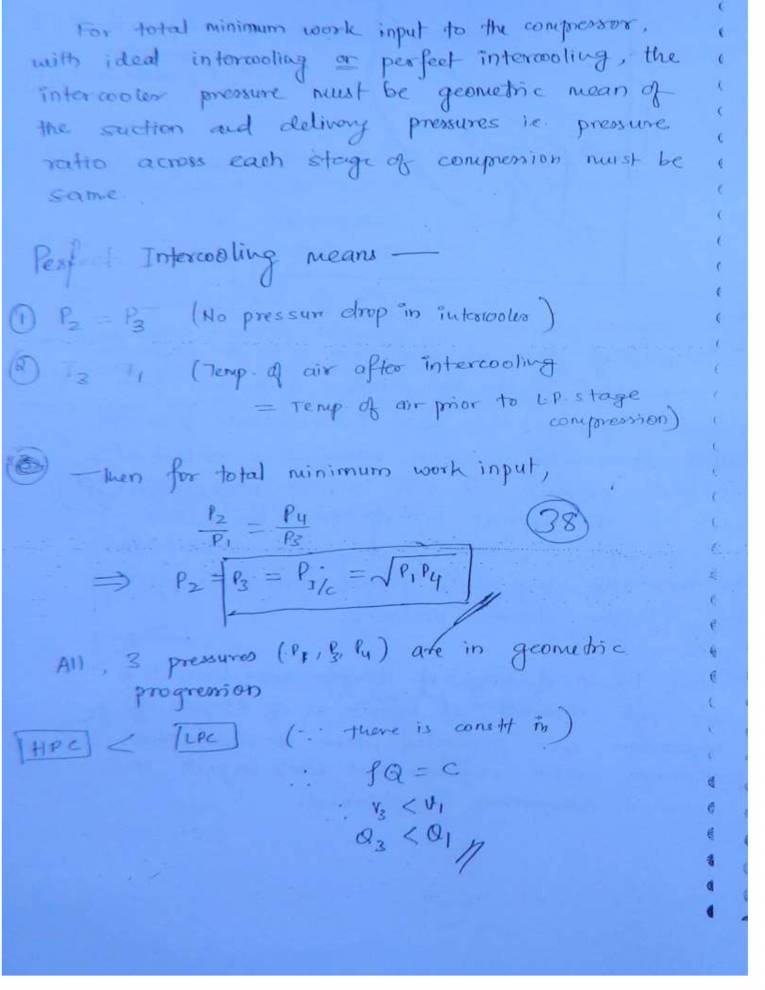 For total minimum work input to the compressor,
with ideal intercooling or perfect intercooling, the
intercooler pressure must be geometric mean of
the suction and delivery pressures i.e. pressure
ratio across each stage of compression must be
same.
Perfect Intercooling means —
① P₂ = P₃ (No pressure drop in intercooler)
② T₃ T₁ (Temp. of air after intercooling
= Temp of air prior to L.P. stage
compression)
③ Then for total minimum work input,
P₂/P₁ = P₄/P₃
38
⇒ P₂ = P₃ = P_I/C = √P₁P₄
All, 3 pressures (P₁, P₃, P₄) are in geometric
progression
HPC < LPC (∵ there is constt ṁ)
∴ ρQ = C
∵ v₃ < v₁
Q₃ < Q₁ //